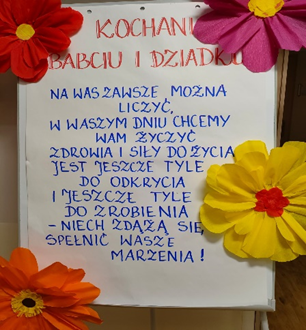 KOCHANI
BABCIU I DZIADKU
NA WAS ZAWSZE MOŻNA
LICZYĆ,
W WASZYM DNIU CHCEMY
WAM ŻYCZYĆ
ZDROWIA I SIŁY DO ŻYCIA
JEST JESZCZE TYLE
DO ODKRYCIA
I JESZCZE TYLE
DO ZROBIENIA
- NIECH ZDĄŻĄ SIĘ
SPEŁNIĆ WASZE
MARZENIA!